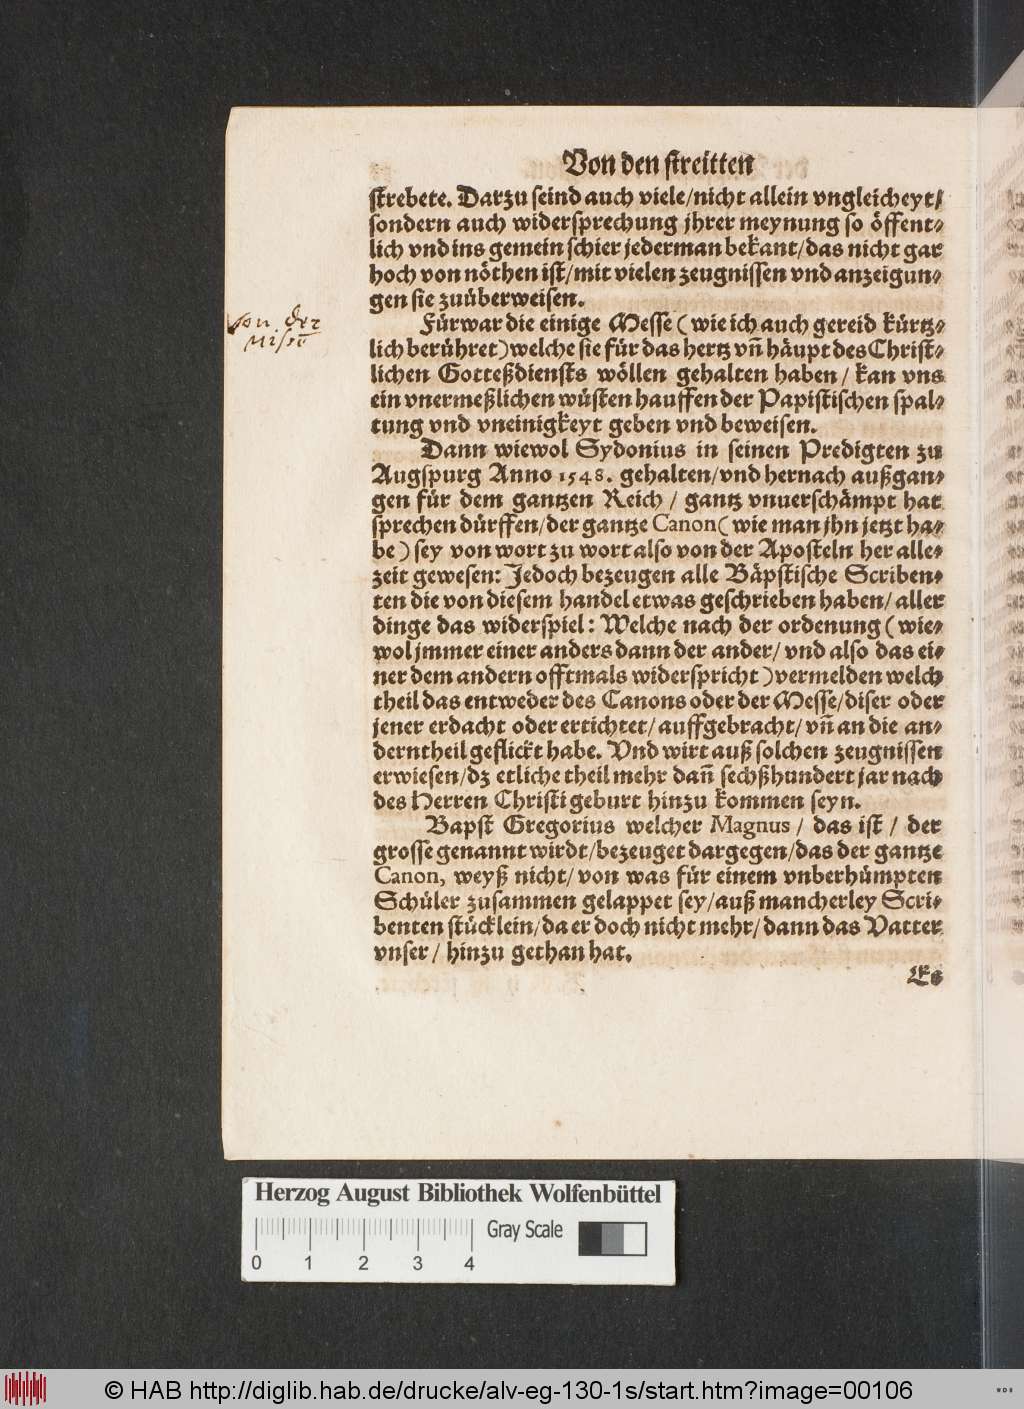 Von den streitten
strebete. Darzu seind auch viele/nicht allein vngleicheyt/
sondern auch widersprechung jhrer meynung so öffent-
lich vnd ins gemein schier jederman bekant/das nicht gar
hoch von nöthen ist/mit vielen zeugnissen vnd anzeigun-
gen sie zuüberweisen.
Von der
Fürwar die einige Messe (wie ich auch gereid kürtz-
lich berühret) welche sie für das hertz vñ häupt des Christ-
lichen Gotteßdiensts wöllen gehalten haben / kan vns
ein vnermeßlichen wüsten hauffen der Papistischen spal-
tung vnd vneinigkeyt geben vnd beweisen.
Dann wiewol Sydonius in seinen Predigten zu
Augspurg Anno 1548. gehalten/vnd hernach außgan-
gen für dem gantzen Reich / gantz vnuerschämpt hat
sprechen dürffen/der gantze Canon (wie man jhn jetzt ha-
be) sey von wort zu wort also von der Aposteln her alle-
zeit gewesen: Jedoch bezeugen alle Bäpstische Scriben-
ten die von diesem handel etwas geschrieben haben/ aller
dinge das widerspiel: Welche nach der ordenung (wie-
wol jmmer einer anders dann der ander/ vnd also das ei-
ner dem andern offtmals widerspricht) vermelden welch
theil das entweder des Canons oder der Messe/diser oder
jener erdacht oder ertichtet/auffgebracht/ vñ an die an-
derntheil geflickt habe. Vnd wirt auß solchen zeugnissen
erwiesen/dz etliche theil mehr dañ sechßhundert jar nach
des Herren Christi geburt hinzu kommen seyn.
Bapst Gregorius welcher Magnus / das ist / der
grosse genannt wirdt/bezeuget dargegen/das der gantze
Canon, weyß nicht/von was für einem vnberhümpten
Schüler zusammen gelappet sey/auß mancherley Scri-
benten stücklein/da er doch nicht mehr/dann das Vatter
vnser / hinzu gethan hat.
Es
Herzog August Bibliothek Wolfenbüttel
Gray Scale
0 1 2 3 4
© HAB http://diglib.hab.de/drucke/alv-eg-130-1s/start.htm?image=00106